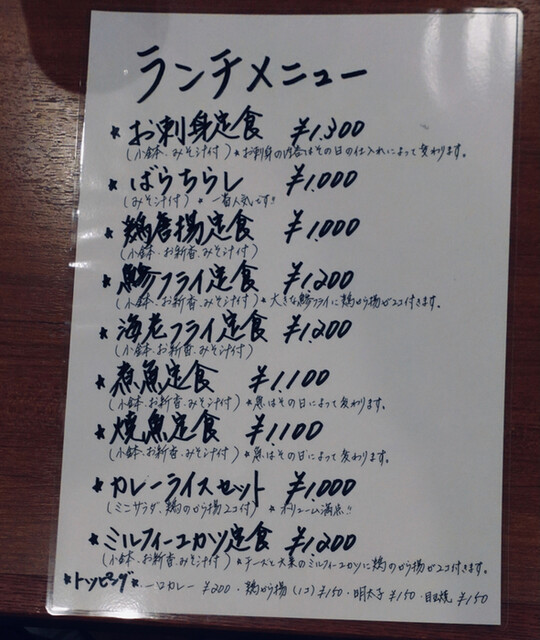 ランチメニュー
★お刺身定食 ¥1,300
(小鉢、みそ汁付)★お刺身の内容はその日の仕入れによって変わります。
★ばらちらし ¥1,000
(みそ汁付)★一番人気です!!
★鶏唐揚定食 ¥1,000
(小鉢、お新香、みそ汁付)
★鯵フライ定食 ¥1,200
(小鉢、お新香、みそ汁付)★大きな鯵フライに鶏から揚が2コ付きます。
★海老フライ定食 ¥1,200
(小鉢、お新香、みそ汁付)
★煮魚定食 ¥1,100
(小鉢、お新香、みそ汁付)★魚はその日によって変わります。
★焼魚定食 ¥1,100
(小鉢、お新香、みそ汁付)★魚はその日によって変わります。
★カレーライスセット ¥1,000
(ミニサラダ、鶏のから揚2コ付)★ボリューム満点!!
★ミルフィーユカツ定食 ¥1,200
(小鉢、お新香、みそ汁付)★チーズと大葉のミルフィーユカツに鶏のから揚が2コ付きます。
★トッピング★ 一口カレー ¥200・鶏から揚(1コ)¥150・明太子 ¥150・目玉焼 ¥150